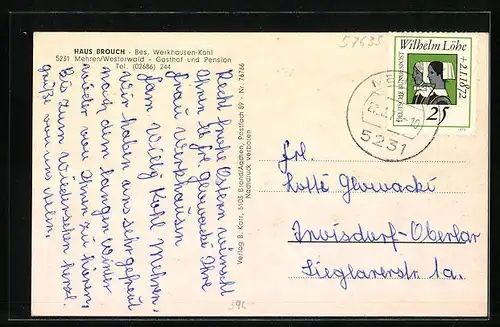 57635
HAUS BROUCH - Bes. Werkhausen-Kohl
5231 Mehren/Westerwald - Gasthof und Pension
Tel. (02686) 244
Wilhelm Löhe
+ 2.1.1872
DEUTSCHE BUNDESPOST
25
5231
Recht frohe Ostern wünscht
Ihnen lb. Frl. Glowacki Ihre
Frau Werkhausen
Fam. Willy Kohl Mehren.
Wir haben uns sehr gefreut
nach dem langen Winter
wieder von Ihnen zu hören.
Bis zum Wiedersehen herzl.
Grüße von uns allen.
Verlag B. Korr, 5105 Brand/Aachen, Postfach 89 - Nr. 76766
Nachdruck verboten
Frl.
Lotte Glowacki
Troisdorf-Oberlar
Sieglarerstr. 1a.